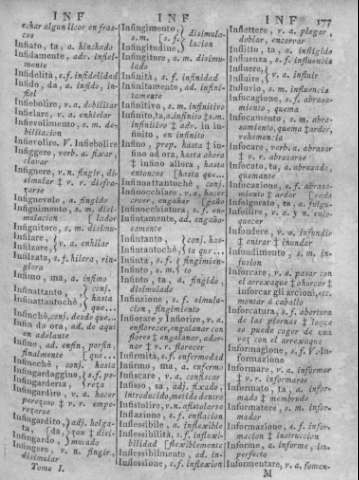 INF INF INF 177
echar algun licor en frascos
Infiato, ta, a. hinchado
Infidamente, adv. infielmente
Infidelità, s.f. infidelidad
Infido, da, a. infido, infiel
Infiebolire, v.a. debilitar
Infielare, v.a. enhielar
Infievolimento, s.m. debilitacion
Infievolire, V. Infiebolire
Infiggere, verb. a. fixar, clavar
Infignere, v.n. fingir, disimular ‡ v.r. disfrazarse
Infignevole, a. fingido
Infignimento, s.m. disimulacion
Infignitore, s.m. disimulador
Infilzare, v.a. enhilar
Infilzata, s.f. hilera,
Infimo, ma, a. infimo
Infinattanto, conj.
Infinattantochè, hasta que...
Infinchè, conj. desde que...
Infin da ora, ad. de aqui en adelante
Infine, ad. enfin, porfin, finalmente
Infinochè, conj. hasta
Infingardaggine, s.f. pereza
Infingarderia,
Infingardire, v.a. hacer perezoso ‡ v.r. emperezarse
Infingardito, adj. holgazan,
Infingardo,
Infingere, v.n. fingir, disimular
Tomo I.
Infingimento, s.m.
Infingitudine, s.f. disimulacion
Infingitore, s.m. disimulado
Infinità, s.f. infinidad
Infinitamente, ad. infinitamente
Infinitivo, s.m. infinitivo
Infinito, ta, a. infinito ‡ s.m. infinitivo ‡ adv. in infinito, en infinito
Infino, prep. hasta ‡ infino ad ora, hasta ahora ‡ infino allora, hasta entonces
Infinoattantochè, conj. hasta que...
Infinocchiare, v.a. hacer creer, engañar
Infinocchiatura, s.f. engaño
Infintamente, ad. engañosamente
Infintanto, conj. hasta que...
Infintantochè,
Infinta, s.f. fingimiento
Infinto, s.m.
Infinto, ta, a. fingido, disimulado
Infinzione, s.f. simulacion, fingimiento
Infiorare y Infiorire, v.a. enflorecer, engalanar con flores ‡ engalanar, adornar ‡ v.r. florecer
Infirmità, s.f. enfermedad
Infirmo, ma, a. enfermo
Infiscare, v.a. confiscar
Infisso, sa, adj. fixado, introducido, metido dentro
Infistolire, v.n. afistolarse
Inflazione, s.f. inflacion
Inflessibile, a. inflexible
Inflessibilità, s.f. inflexibilidad
Inflessibilmente, ad.
Inflessione, s.f. inflexion
Inflettere, v.a. plegar, doblar, encorvar
Inflitto, ta, a. infligido
Influenza, s.f. influencia
Influere,
Influire, v.a. influir
Influvio, s.m. influencia
Infocagione, s.f. abrasamiento, quema
Infocamento, s.m. abrasamiento, quema ‡ ardor, rehemala
Infocare, verb. a. abrasar ‡ v.r. abrasarse
Infocato, ta, a. abrasado, quemante
Infocazione, s.f. abrasamiento ‡ ardor
Infolgorato, ta, a. fulgurado
Infollire, v.a. y n. enloquecer
Infondere, v.a. infundir ‡ entrar ‡ inundar
Infondimento, s.m. infusion
Inforcare, v.a. pasar con el arrexaque ‡ ahorcar ‡ inforcar gli arcioni, etc. montar á caballo
Inforcatura, s.f. abertura de las piernas ‡ lo que se puede coger de una vez con el arrexaque
Informagione, s.f. V. Informazione
Informare, v.a. informar ‡ v.r. informarse
Informato, ta, a. informado ‡ membrudo
Informatore, s.m. informador
Informazione, s.f. informacion ‡ instruccion
Informe, a. informe, imperfecto
Informentare, v.a. fomen-
M